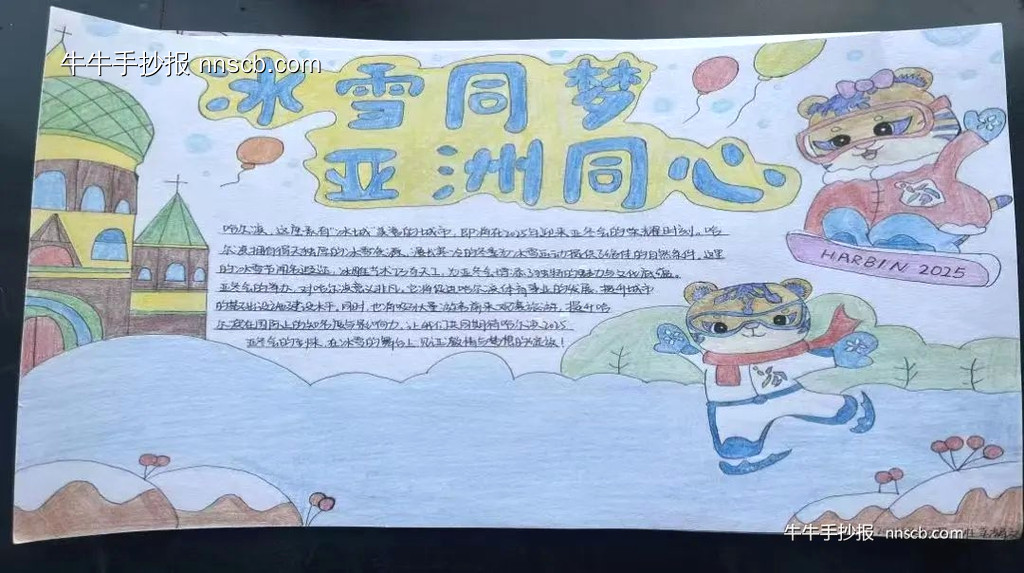 牛牛手抄报 nnscb.com
冰雪同梦
亚洲同心
哈尔滨，这座素有"冰城"美誉的城市，即将在2025年迎来亚冬会的荣耀时刻。哈
尔滨拥有得天独厚的冰雪资源，漫长寒冷的冬季为冰雪运动提供了绝佳的自然条件，这里
的冰雪节闻名遐迩，冰雕艺术巧夺天工，为亚冬会增添了独特的魅力与文化底蕴。
亚冬会的举办，对哈尔滨意义非凡。它将促进哈尔滨体育事业的发展，提升城市
的基础设施建设水平，同时，也将吸引大量游客前来观赛旅游，提升哈
尔滨在国际上的知名度与影响力，让我们共同期待哈尔滨2025
亚冬会的到来，在冰雪的舞台上，见证激情与梦想的绽放！
HARBIN 2025
牛牛手抄报 nnscb.com